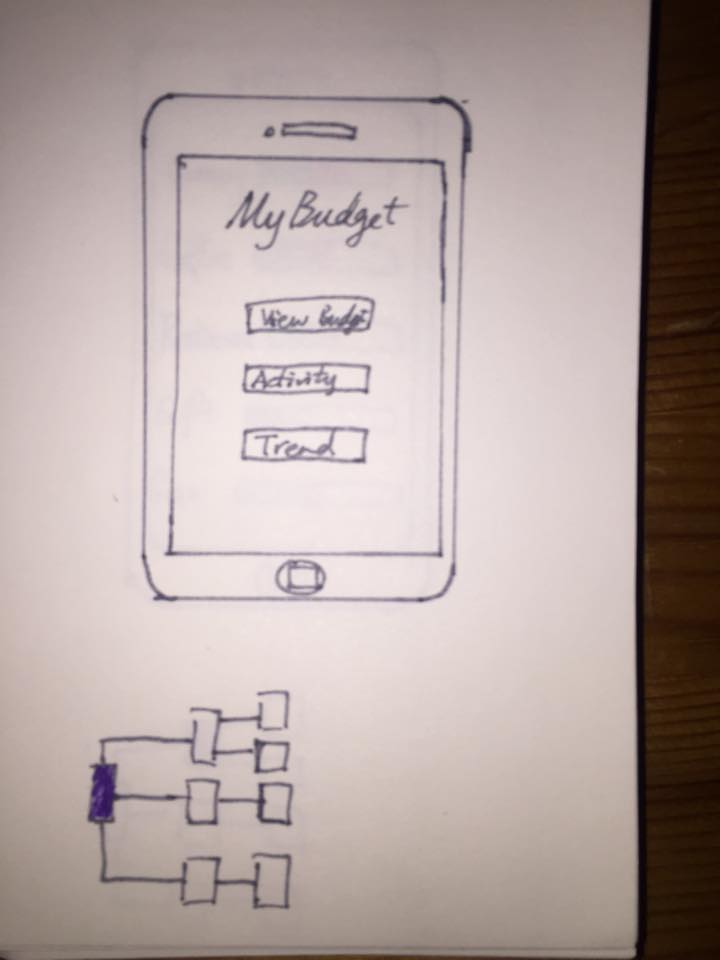 My Budget
View Budget
Activity
Trend